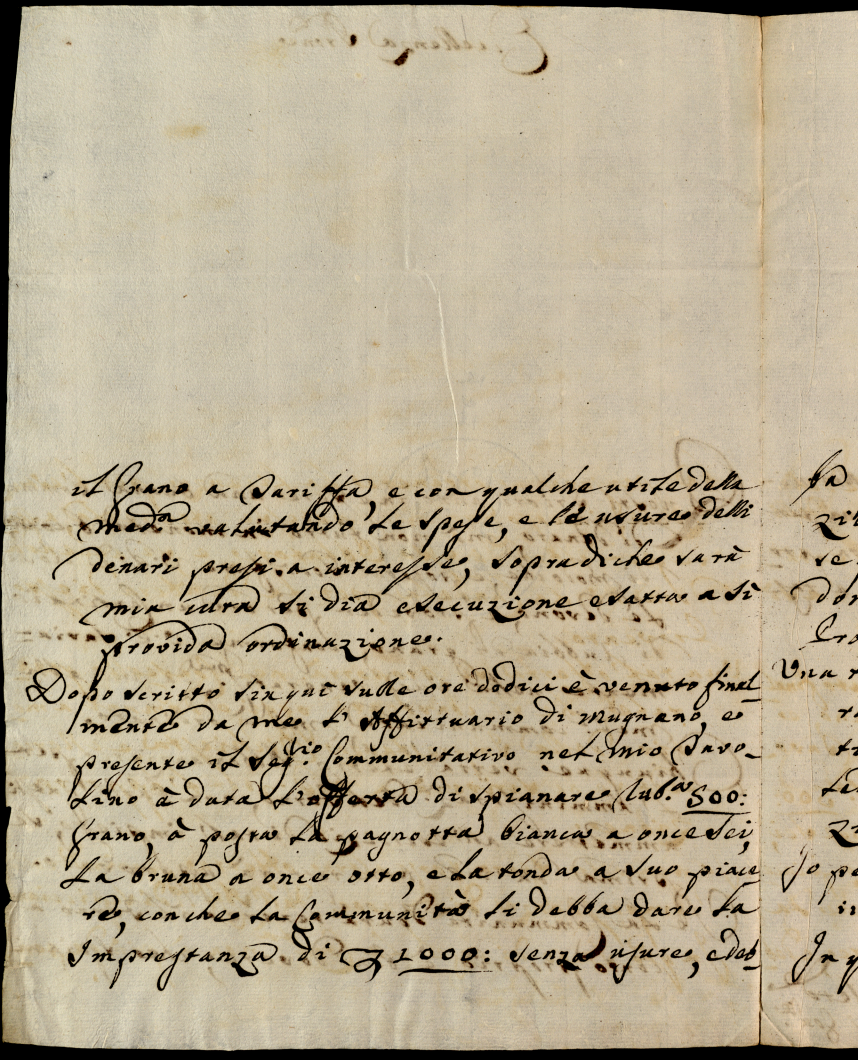 il Grano a Tariffa, e con qualche utile della
med.ª valutando le Spese, e le usure delli
denari presi a interesse, sopra di che sarà
mia cura si dia esecuzione esatta a sì
provida ordinazione.
Dopo scritto sin quì sulle ore dodici è venuto final_
mente da me l'Affittuario di Mugnano, e
presente il Seg.rio Communitativo nel mio Tavo_
lino à data l'offerta di spianare Rub.ª 500:
Grano, à posta la pagnotta bianca a once sei,
la bruna a once otto, e la tonda a suo piace
re, con che la Communità li debba dare la
Imprestanza di 1000: senza usure, e deb_
fa
se
Una
Io pe
In q